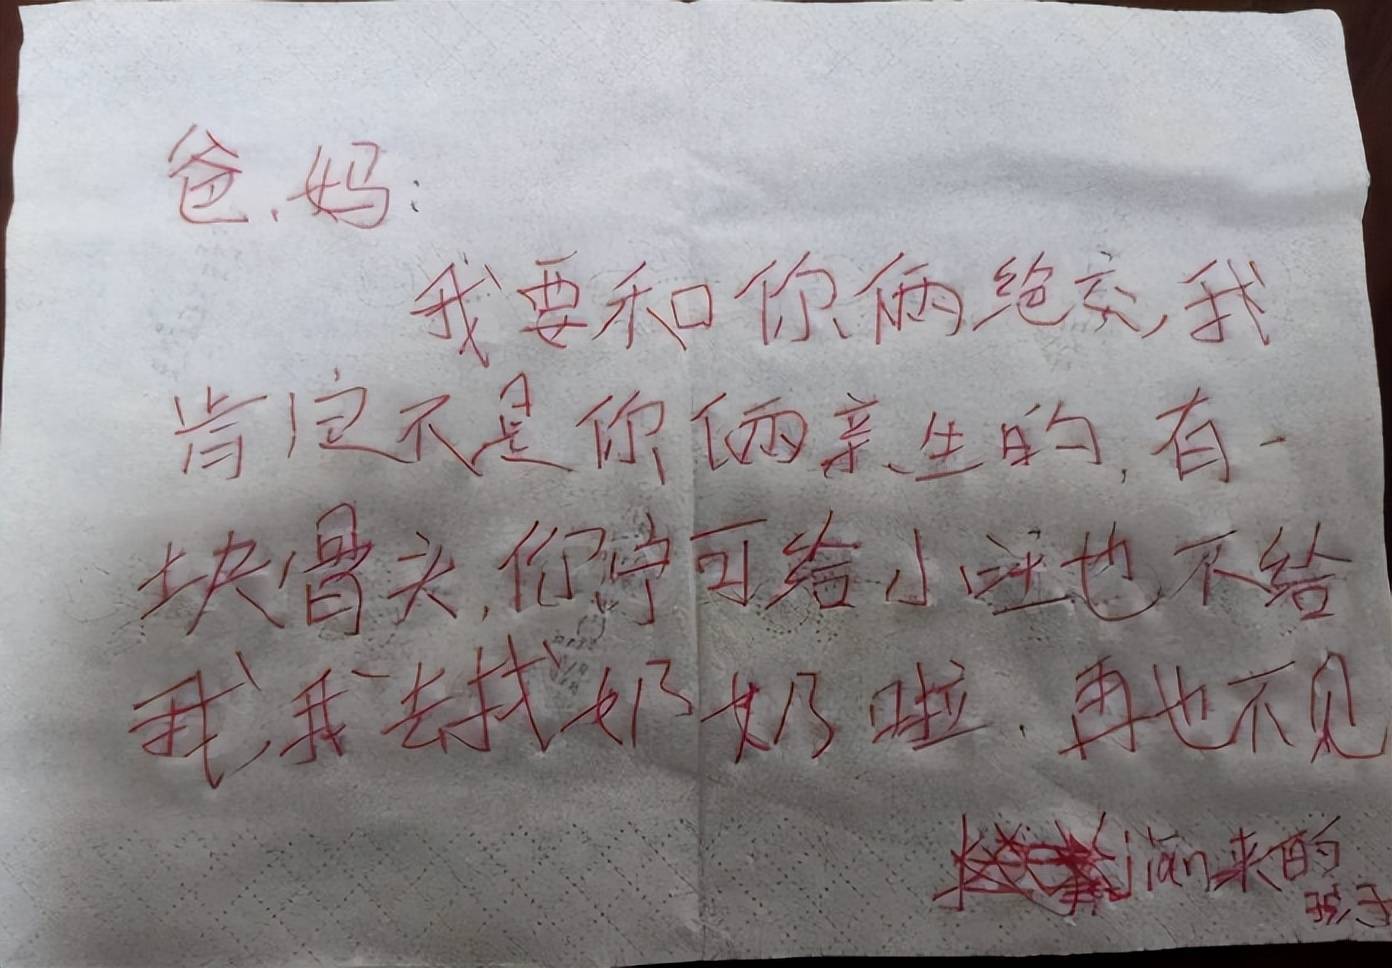 爸、妈：
我要和你俩绝交，我
肯定不是你俩亲生的，有一
块骨头，你宁可给小汪也不给
我，我去找奶奶啦．再也不见
jiǎn来的
孩子